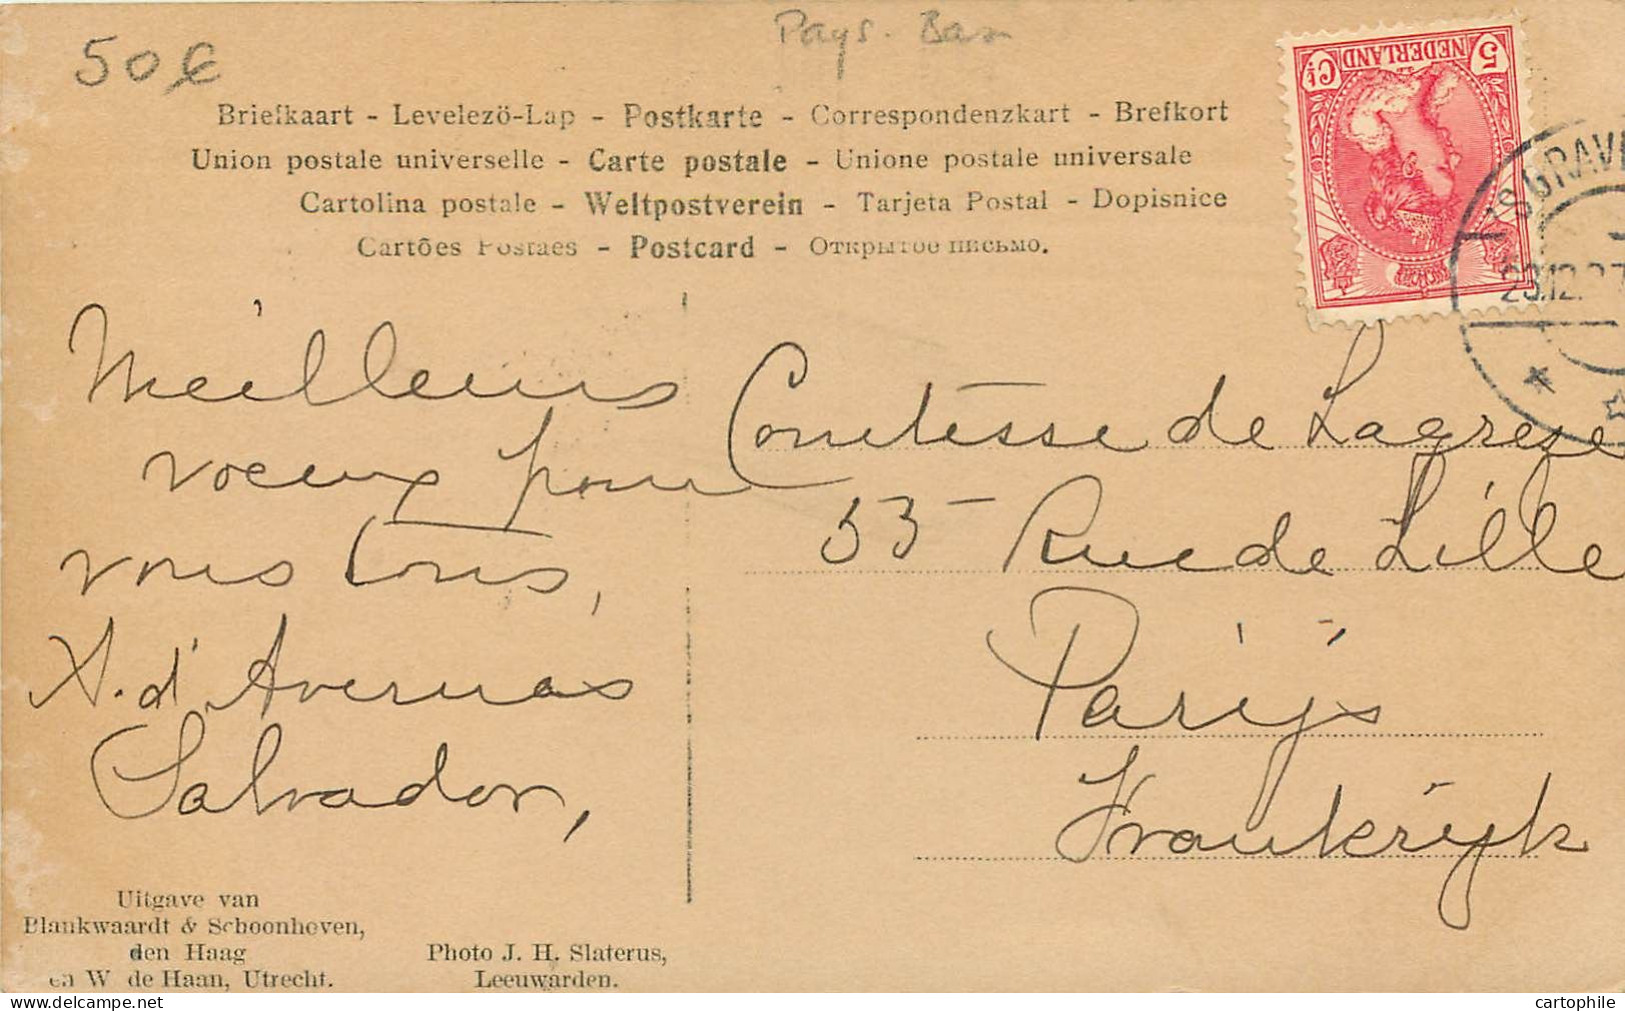 50€
Pays-Bas
Briefkaart - Levelezö-Lap - Postkarte - Correspondenzkart - Brefkort
Union postale universelle - Carte postale - Unione postale universale
Cartolina postale - Weltpostverein - Tarjeta Postal - Dopisnice
Cartões Postaes - Postcard - Открытое письмо.
5 NEDERLAND Ct
'SGRAVE
23.12.07
Meilleurs
voeux pour
vous tous,
A. d'Avernas
Salvador,
Comtesse de Lagrese
53 - Rue de Lille
Parijs
Frankrijk
Uitgave van
Blankwaardt & Schoonhoven,
den Haag
en W de Haan, Utrecht.
Photo J. H. Slaterus,
Leeuwarden.
cartophile